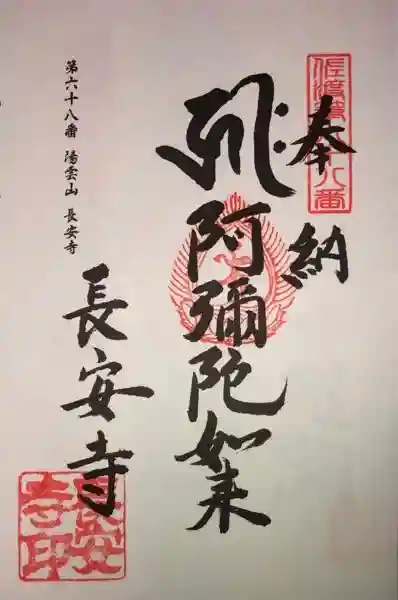 奉納
佐渡第六十八番
阿彌陀如来
長安寺
第六十八番 湯雲山 長安寺
長安寺印